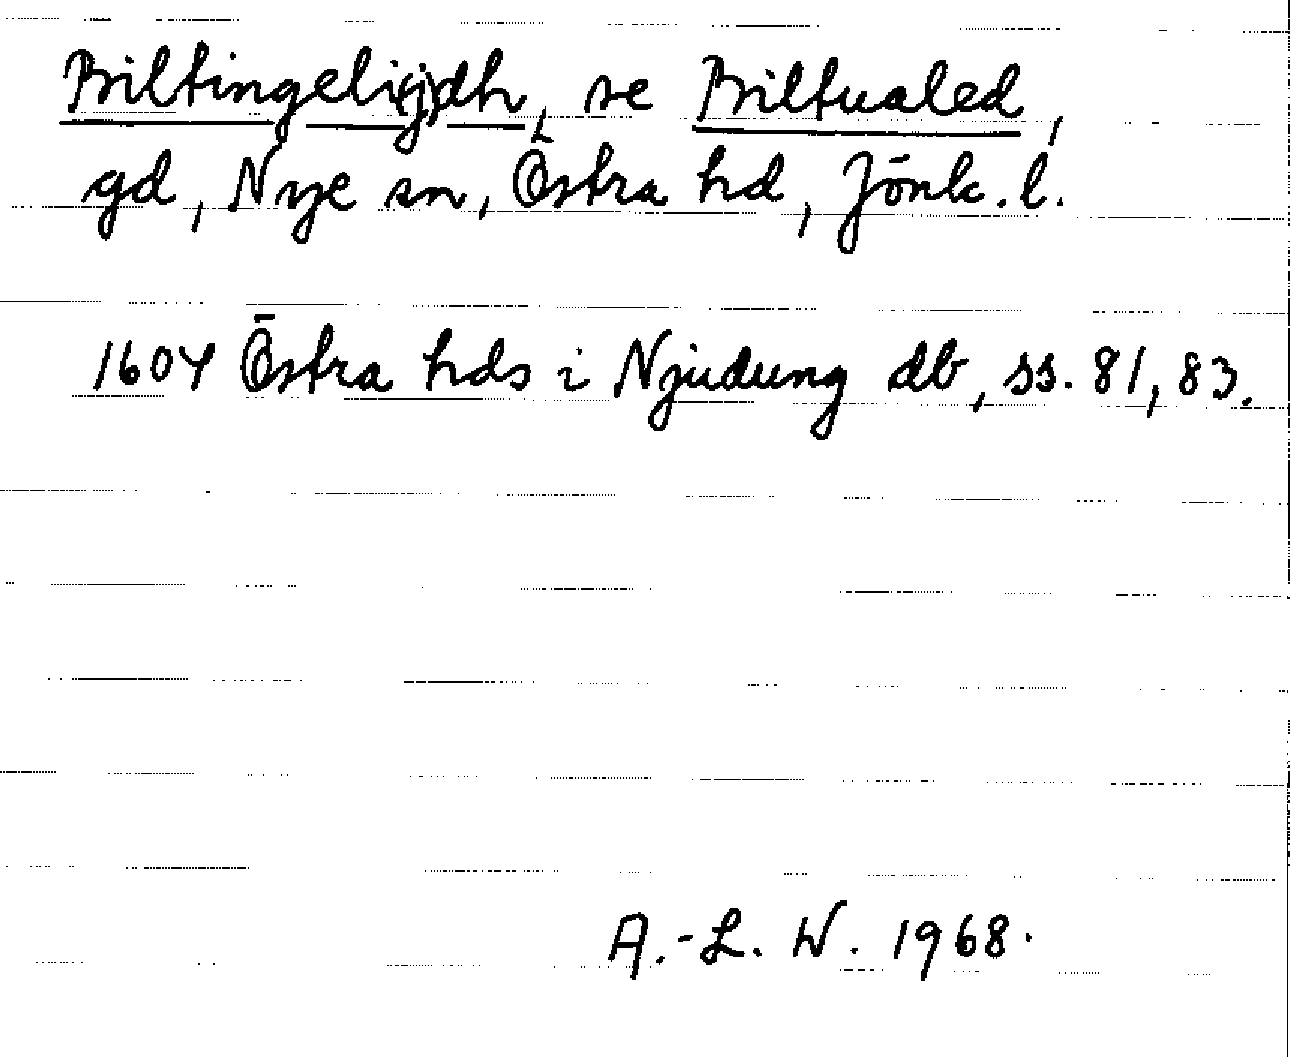 Briltingeli(j)dh, se Briltualed,
gd, Nye sn, Östra hd, Jönk. l.
1604 Östra hds i Njudung db, ss. 81, 83.
A.-L. W. 1968.